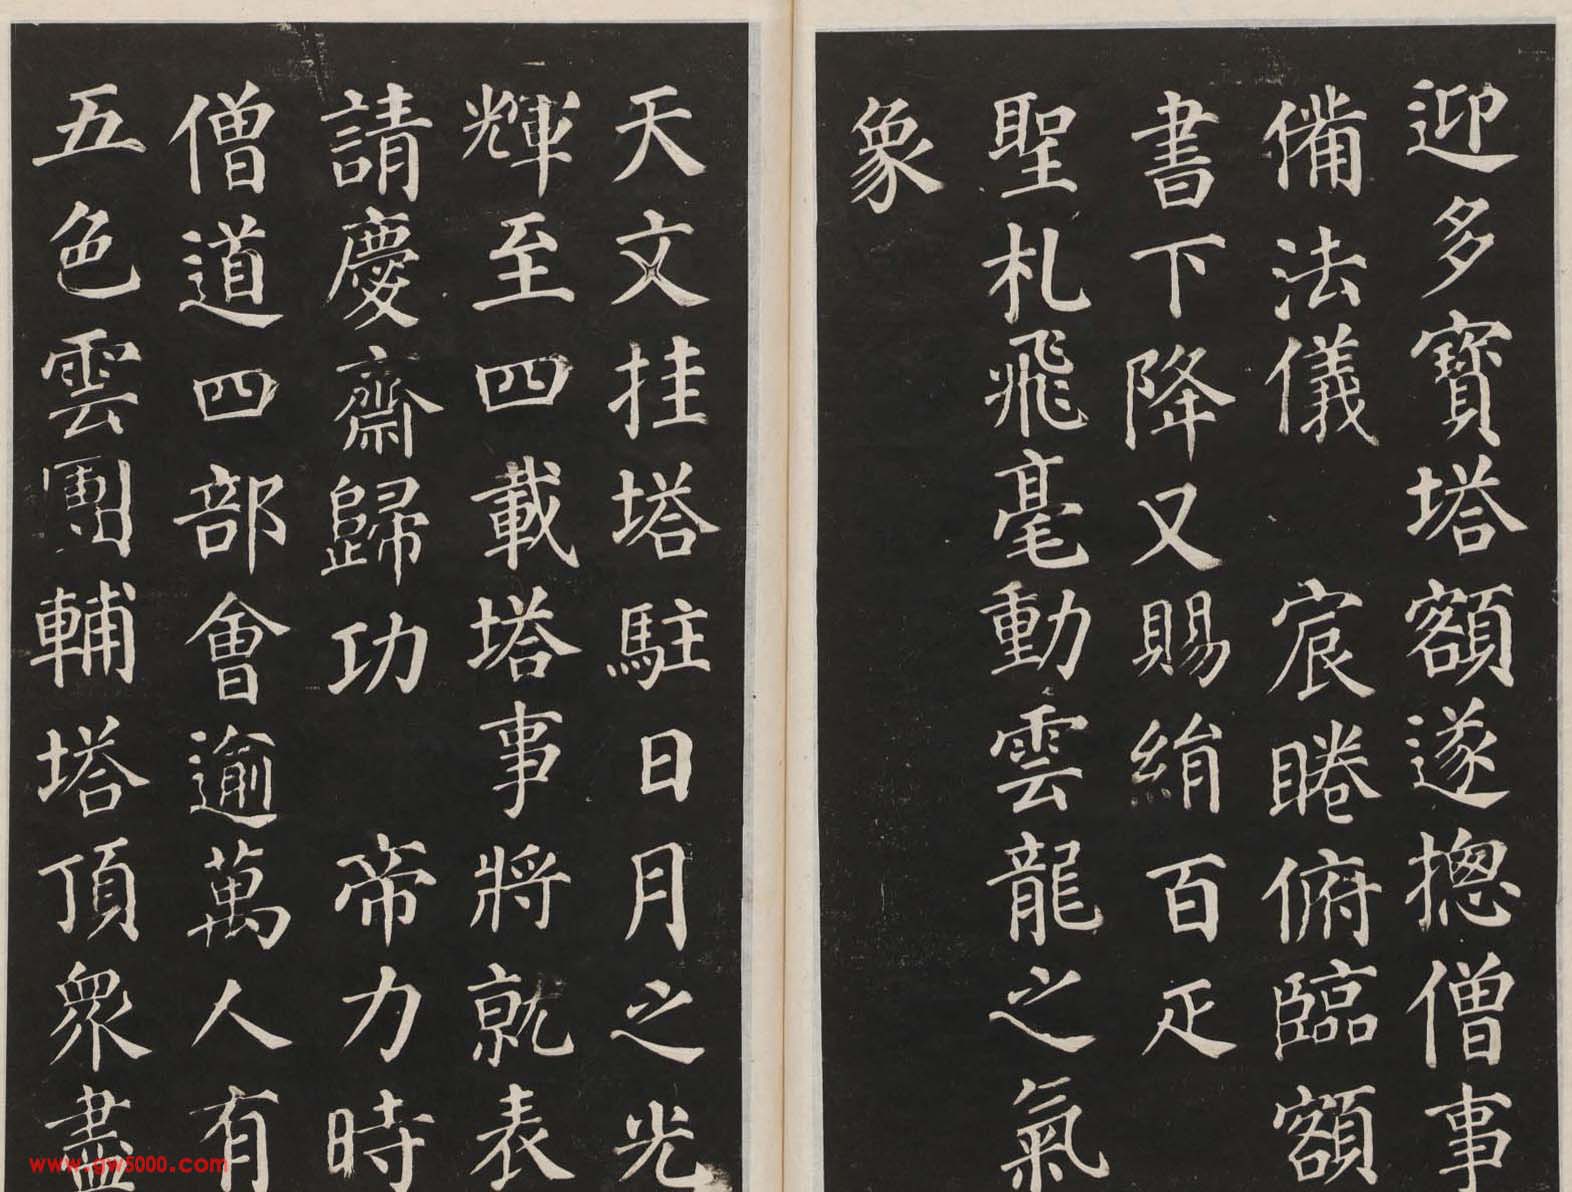 迎多寶塔額遂揔僧事
備法儀 宸睠俯臨額
書下降又賜絹百疋
聖札飛毫動雲龍之氣
象
天文挂塔駐日月之光
輝至四載塔事將就表
請慶齋歸功 帝力時
僧道四部會逾萬人有
五色雲團輔塔頂眾盡
www.gw5000.com